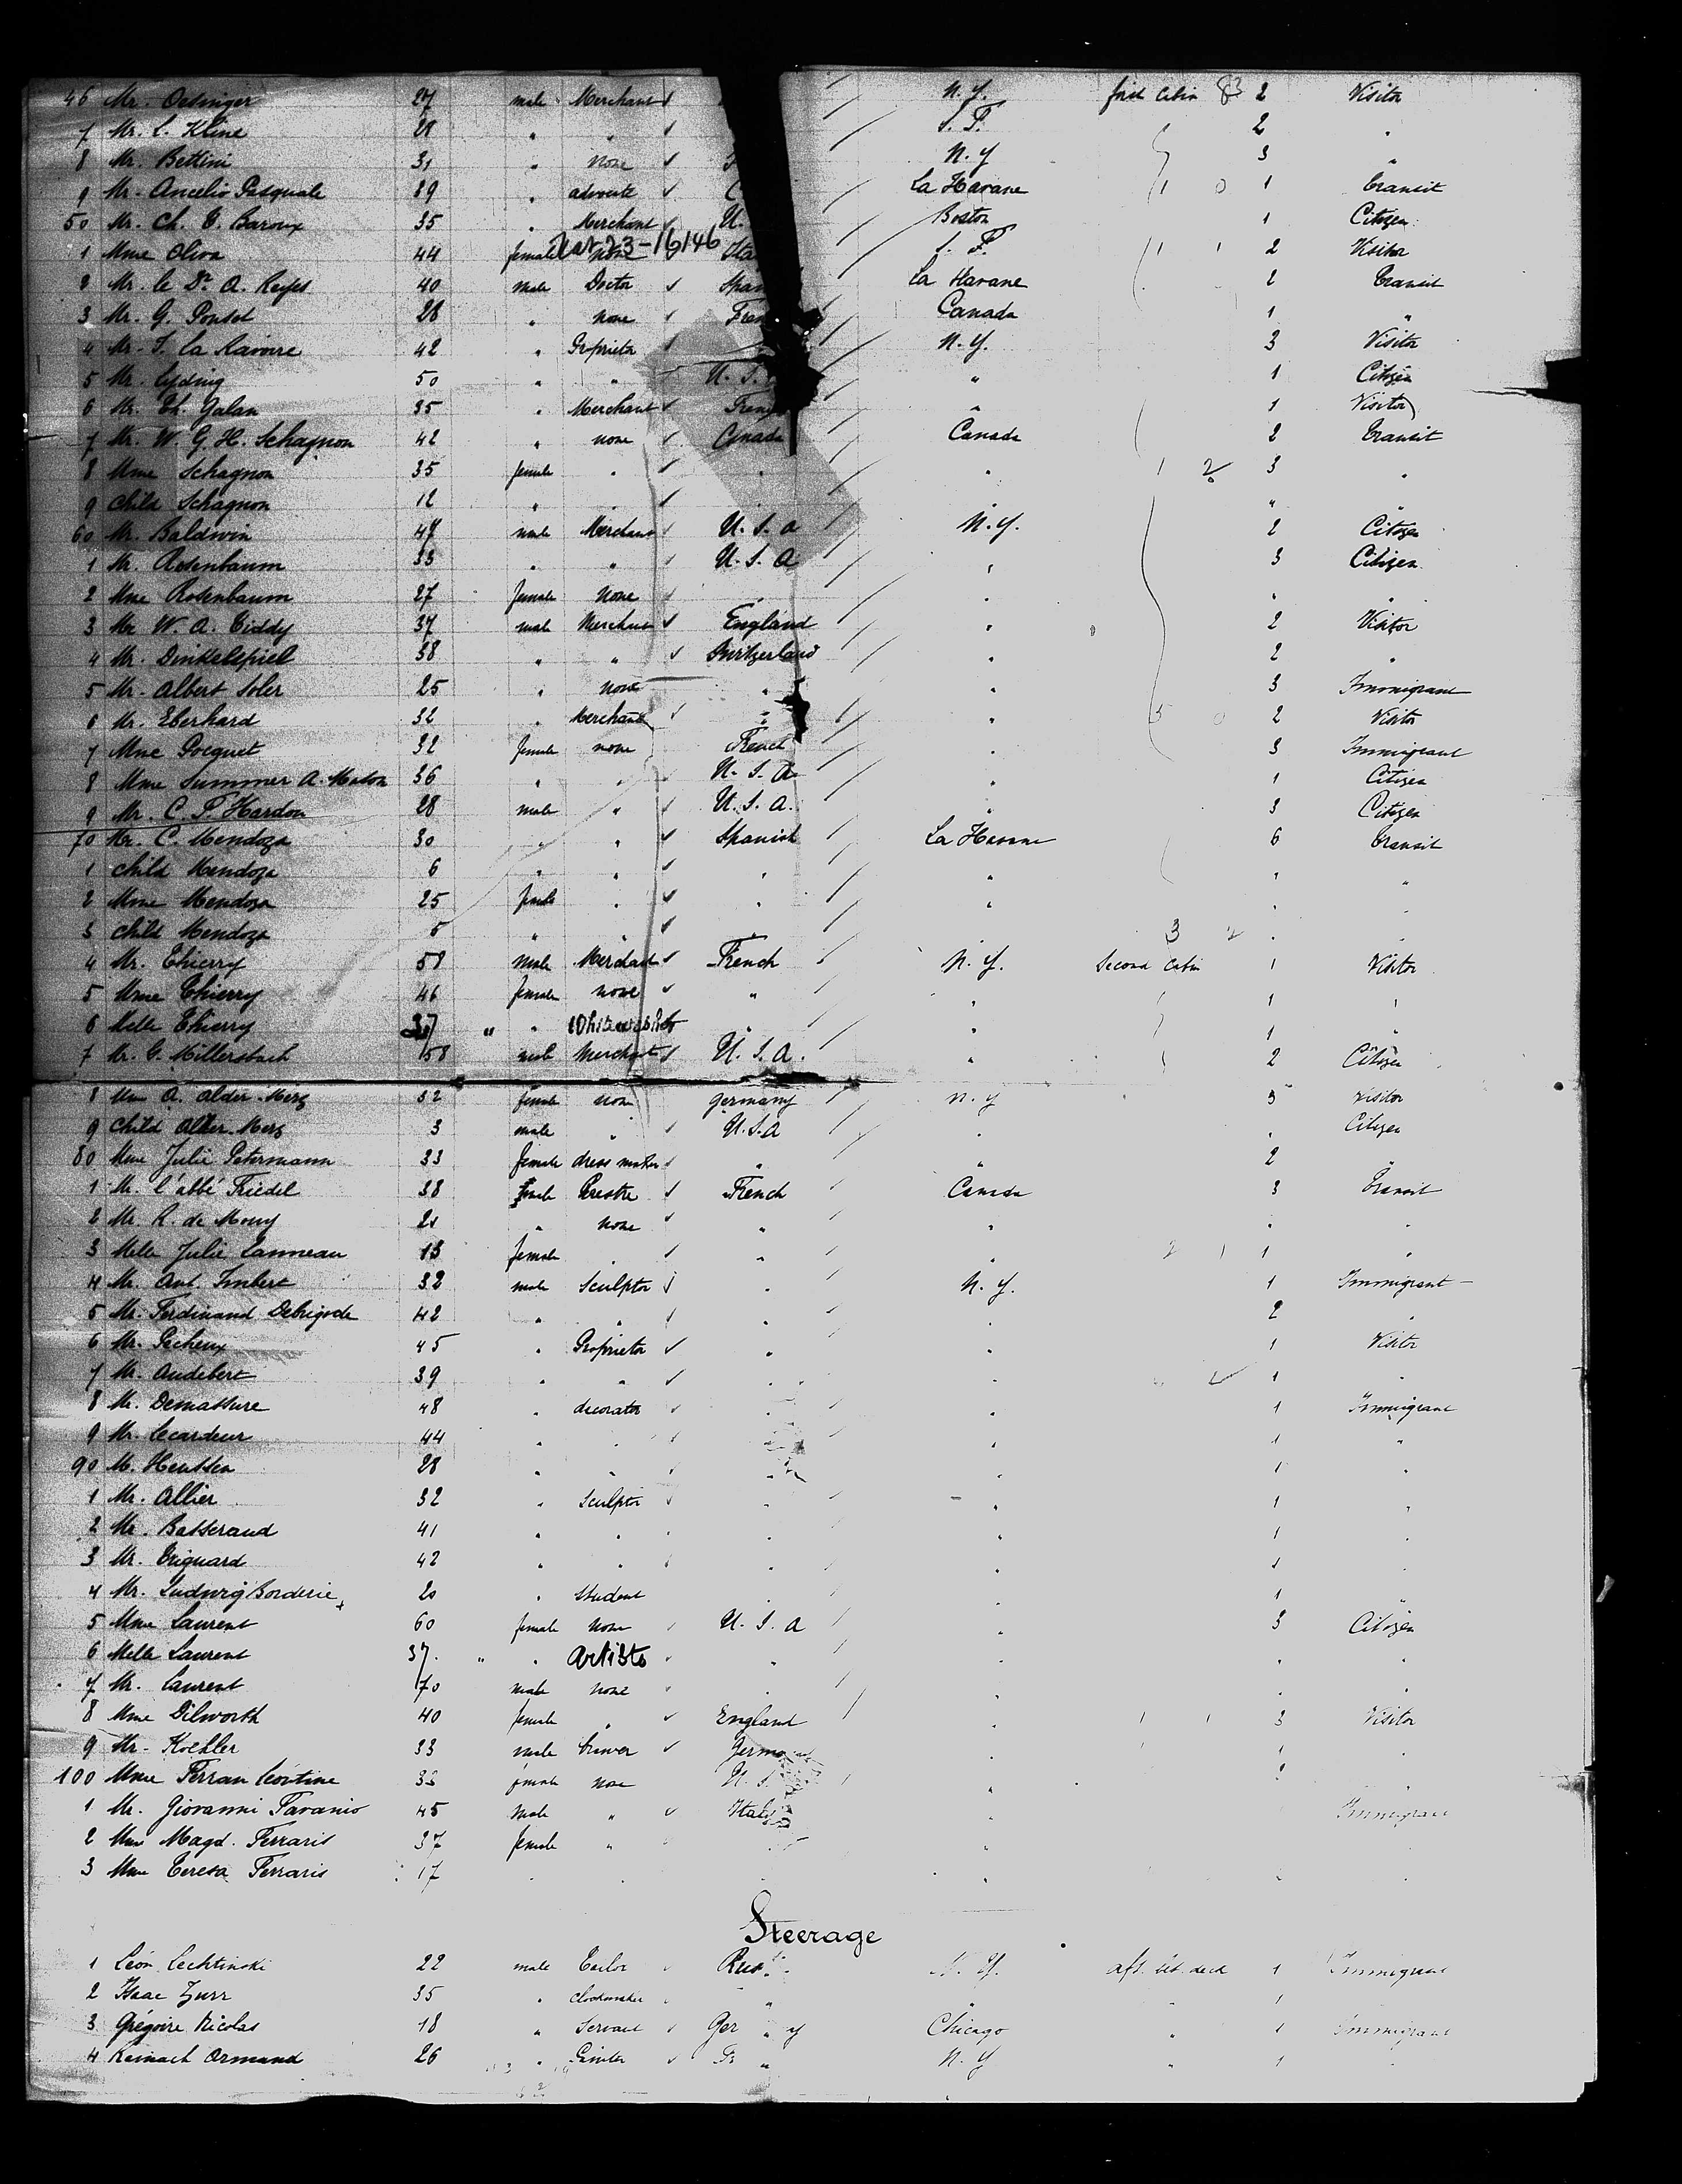 46 Mr. Oetinger 27 male Merchant N.Y. first Cabin 83 2 Visitor
7 Mr. L. Kline 28 " " S. F. 2 "
8 Mr. Bettini 31 " none N.Y 3 "
9 Mr. Ancelio Pasquale 39 " advocate La Havane 1 0 1 Transit
50 Mr. Ch. E. Baroux 35 " Merchant U. Boston 1 Citizen
1 Mme Oliva 44 female none 23-16146 Ita S. F. 1 1 2 Visitor
2 Mr. le Dr. A. Reyes 40 male Doctor Span La Havane 2 Transit
3 Mr. G. Ponset 28 " none Fran Canada 1 "
4 Mr. S. La Ravoire 42 " Proprietor N.Y. 3 Visitor
5 Mr. Lyding 50 " " U.S. " 1 Citizen
6 Mr. Th. Galan 35 " Merchant Fren " 1 Visitor
7 Mr. W. G. H. Schagnon 42 " none Canada Canada 2 Transit
8 Mme Schagnon 35 female " " " 1 2 3 "
9 child Schagnon 12 " " " " "
60 Mr. Baldwin 47 male Merchant U.S.A N.Y. 2 Citizen
1 Mr. Rosenbaum 33 " " U.S.A " 3 Citizen
2 Mme Rosenbaum 27 female None " " " "
3 Mr W. A. Tiddy 37 male Merchant England " 2 Visitor
4 Mr. Dinkelspiel 38 " " Switzerland " 2 "
5 Mr. Albert Soler 25 " none " " 3 Immigrant
6 Mr. Eberhard 32 " Merchant " " 5 0 2 Visitor
7 Mme Pocquet 32 female none French " 3 Immigrant
8 Mme Summer A. Maton 36 " " U.S.A " 1 Citizen
9 Mr. C. F. Hardon 28 male " U.S.A. " 3 Citizen
70 Mr. C. Mendoza 30 " " Spanish La Havane 6 Transit
1 child Mendoza 6 " " " " " "
2 Mme Mendoza 25 female " " " " "
3 child Mendoza 5 " " " " 3 2 " "
4 Mr. Thierry 58 male Merchant French N.Y. Second Cabin 1 Visitor
5 Mme Thierry 46 female none " " 1 "
6 Melle Thierry 37 " " " " 1 "
7 Mr. G. Millersbach 58 male Merchant U.S.A. " 2 Citizen
8 Mme A. Alder-Merz 32 female none Germany N.Y 3 Visitor
9 Child Alder-Merz 3 male " U.S.A " " Citizen
80 Mme Julie Petermann 33 female dress maker " " 2 "
1 Mr. l'abbé Friedel 38 male Prestre French Canada 3 Transit
2 Mr. R. de Mouy 21 " none " " " "
3 Melle Julie Lanneau 13 female " " 2 1 1 "
4 Mr. Ant. Imbert 32 male Sculptor " N.Y. 1 Immigrant
5 Mr. Ferdinand Debrigode 42 " " " " 2 "
6 Mr. Pecheux 45 " Proprietor " " 1 Visitor
7 Mr. Audebert 39 " " " " 1 "
8 Mr. Demassure 48 " decorator " " 1 Immigrant
9 Mr. Lecardeur 44 " " " " 1 "
90 M. Henssen 28 " " " " 1 "
1 Mr. Allier 32 " Sculptor " " 1 "
2 Mr. Basseraud 41 " " " " 1 "
3 Mr. Triquard 42 " " " " 1 "
4 Mr. Ludwig Borderie 20 " Student " " 1 "
5 Mme Laurent 60 female none U.S.A " 3 Citizen
6 Melle Laurent 37 " " Artiste " " " "
7 Mr. Laurent 70 male none " " " "
8 Mme Dilworth 40 female " England " 1 1 3 Visitor
9 Mr. Koehler 33 male brewer Germa " "
100 Mme Ferran Léontine 33 female none U.S. " "
1 Mr. Giovanni Favanio 45 male " Italy " Immigrant
2 Mme Magd. Ferraris 37 female " " "
3 Mme Teresa Ferraris 17 " " " "
Steerage
1 Léon Lechtinski 22 male Tailor Rus N.Y. aft. bet. deck 1 Immigrant
2 Isaac Zurr 35 " Clockmaker " " 1
3 Grégoire Nicolas 18 " Servant Ger y Chicago " 1 Immigrant
4 Reinach Ormand 26 " Painter Fr " N.Y " 1 "